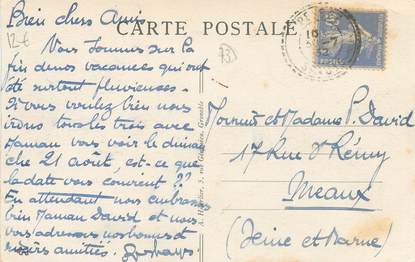 Bien chers Amis
12 €
CARTE POSTALE
Nous sommes sur la
fin de nos vacances qui ont
été surtout pluvieuses.
Si vous voulez bien nous
irons tous les trois avec
Maman vous voir le diman
che 21 août, est-ce que
la date vous convient ??
En attendant nous embrassons
bien Maman David et nous
vous adressons nos bonnes et
amitiés.
73
Monsieur et Madame P. David
17 Rue St Rémy
Meaux
(Seine et Marne)